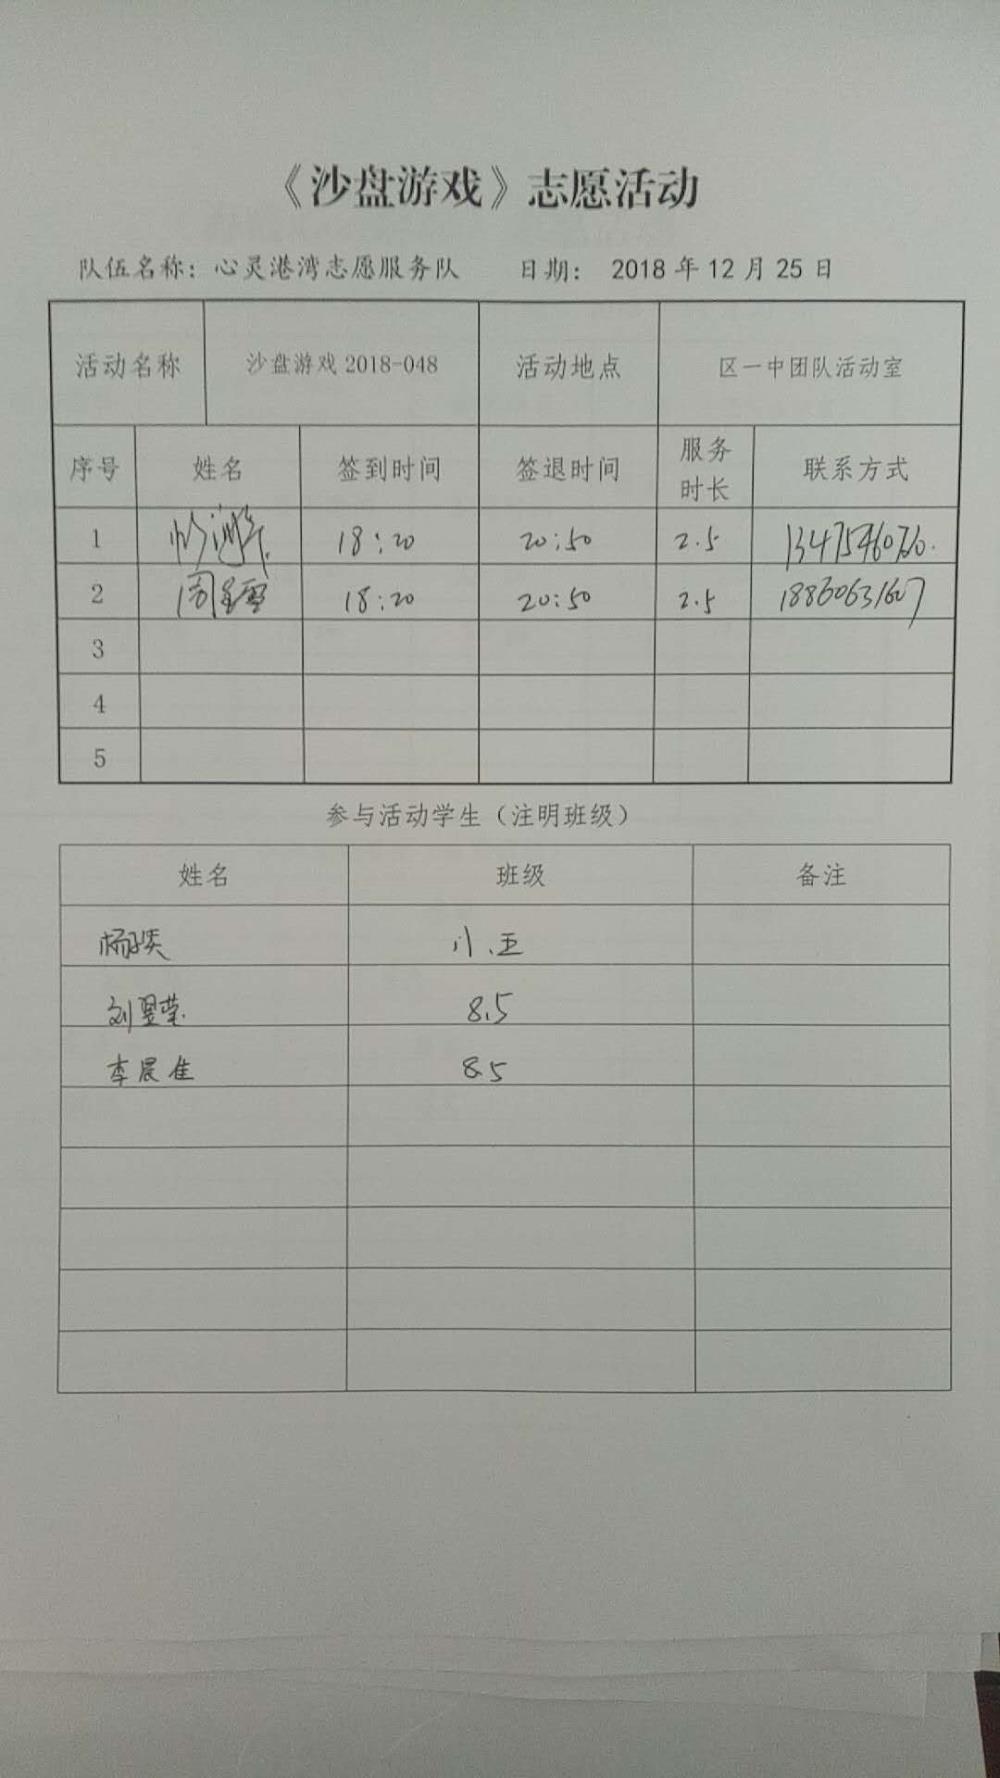 《沙盘游戏》志愿活动
队伍名称：心灵港湾志愿服务队 日期： 2018 年 12 月 25 日
活动名称 沙盘游戏 2018-048 活动地点 区一中团队活动室
序号 姓名 签到时间 签退时间 服务时长 联系方式
1 18:20 20:50 2.5
2 18:20 20:50 2.5 18860631607
3
4
5
参与活动学生（注明班级）
姓名 班级 备注
八.五
刘翌莹 8.5
李晨佳 8.5